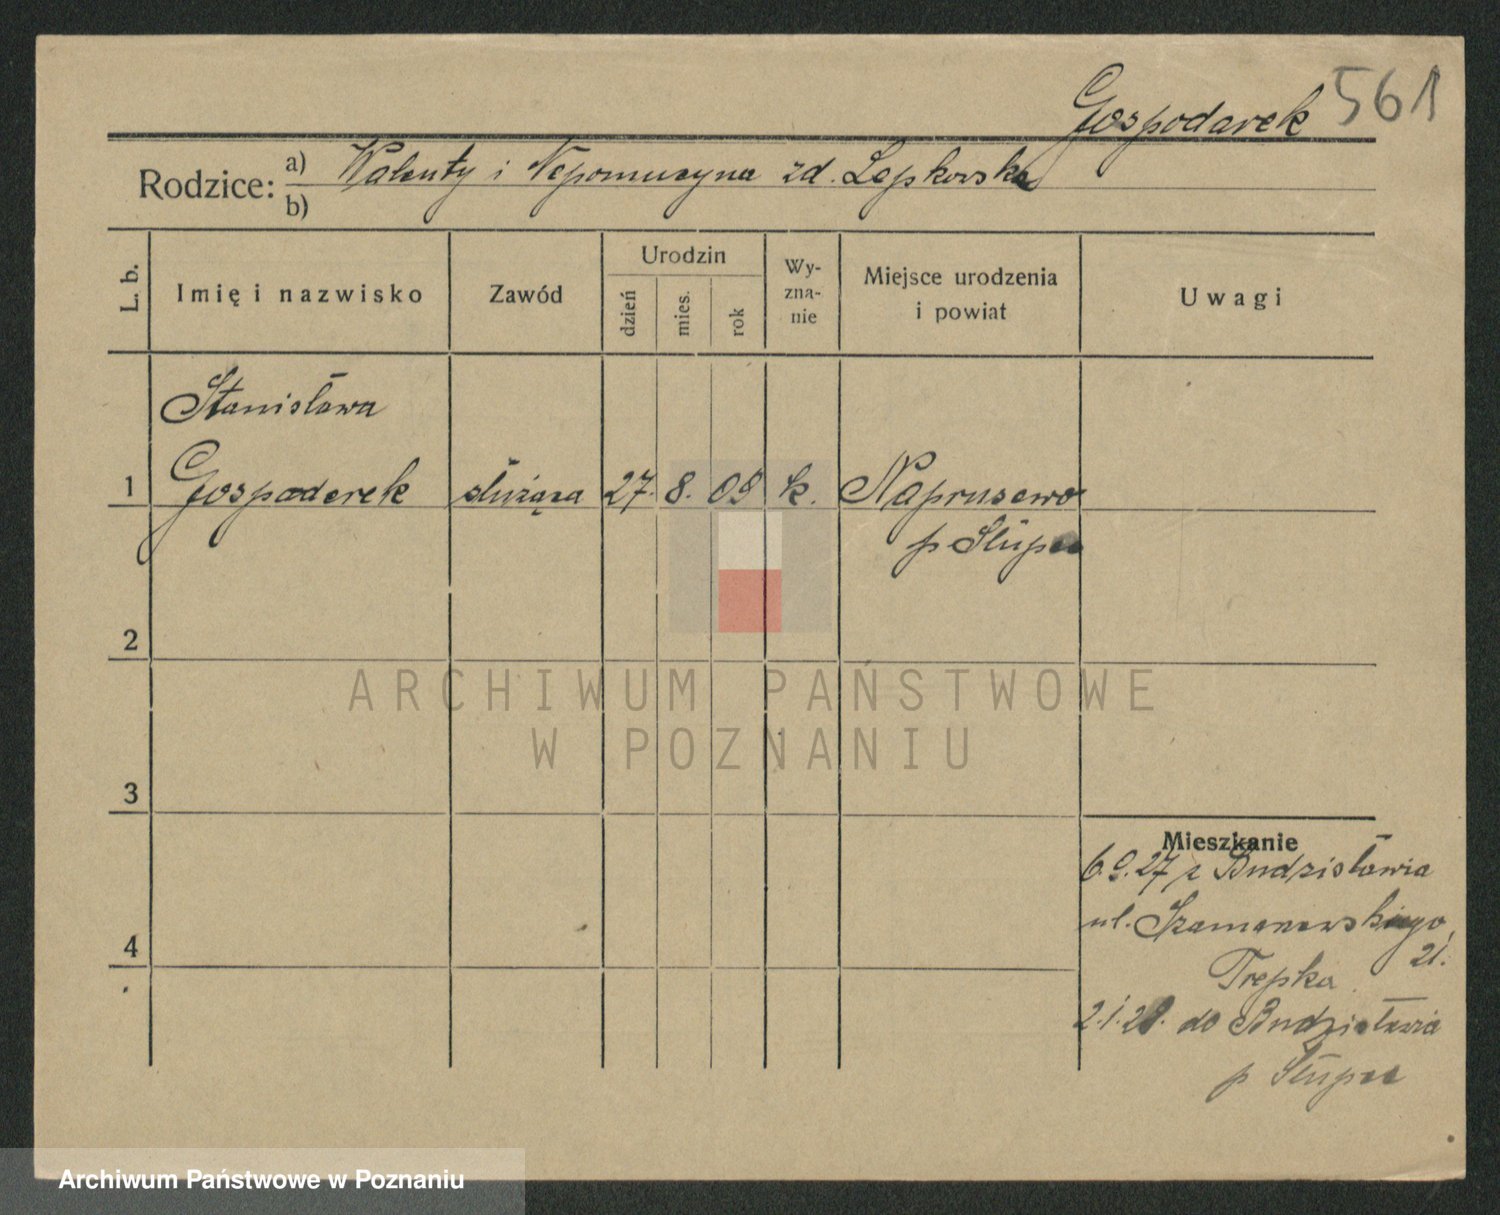 Gospodarek 561
Rodzice: a) Walenty i Nepomucyna zd. Lepkowska
b)
L. b.
Imię i nazwisko
Zawód
Urodzin
dzień
mies.
rok
Wy-
zna-
nie
Miejsce urodzenia
i powiat
Uwagi
Stanisława
1 Gospodarek służąca 27. 8. 09 k. Naprusewo
p Słupca
2
ARCHIWUM PAŃSTWOWE
W POZNANIU
3
Mieszkanie
6.9.27 z Budzisławia
ul.
21.
4
Trepka
2.1.28. do Budzisławia
p Słupca
Archiwum Państwowe w Poznaniu